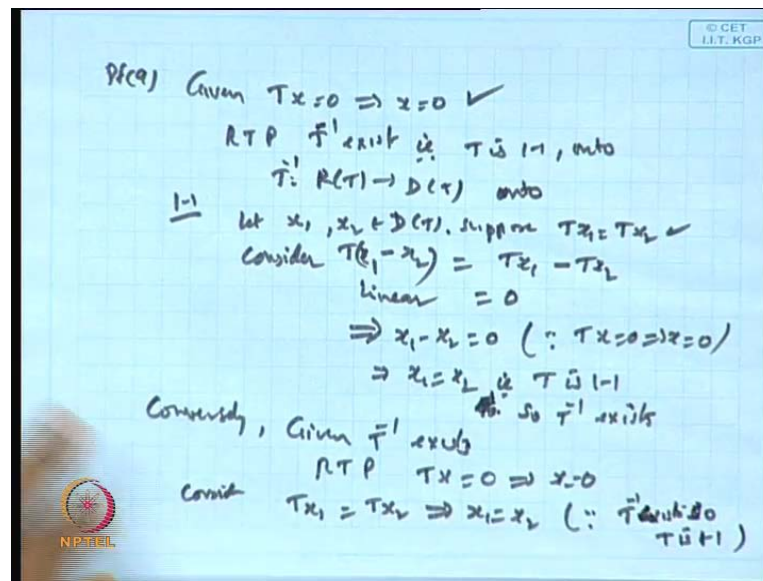 © CET
I.I.T. KGP
Pf(a) Given Tx=0 ⇒ x=0 ✓
RTP T⁻¹ exist ie T is 1-1, onto
T⁻¹: R(T) → D(T) onto
1-1
Let x₁, x₂ ∈ D(T). Suppose Tx₁ = Tx₂ ✓
Consider T(x₁-x₂) = Tx₁ - Tx₂
Linear = 0
⇒ x₁-x₂ = 0 (∵ Tx=0 ⇒ x=0)
⇒ x₁ = x₂ ie T is 1-1
So T⁻¹ exists
Conversely, Given T⁻¹ exists
RTP Tx=0 ⇒ x=0
Consid Tx₁ = Tx₂ ⇒ x₁=x₂ (∵ T⁻¹ exists so
T is 1-1)
NPTEL